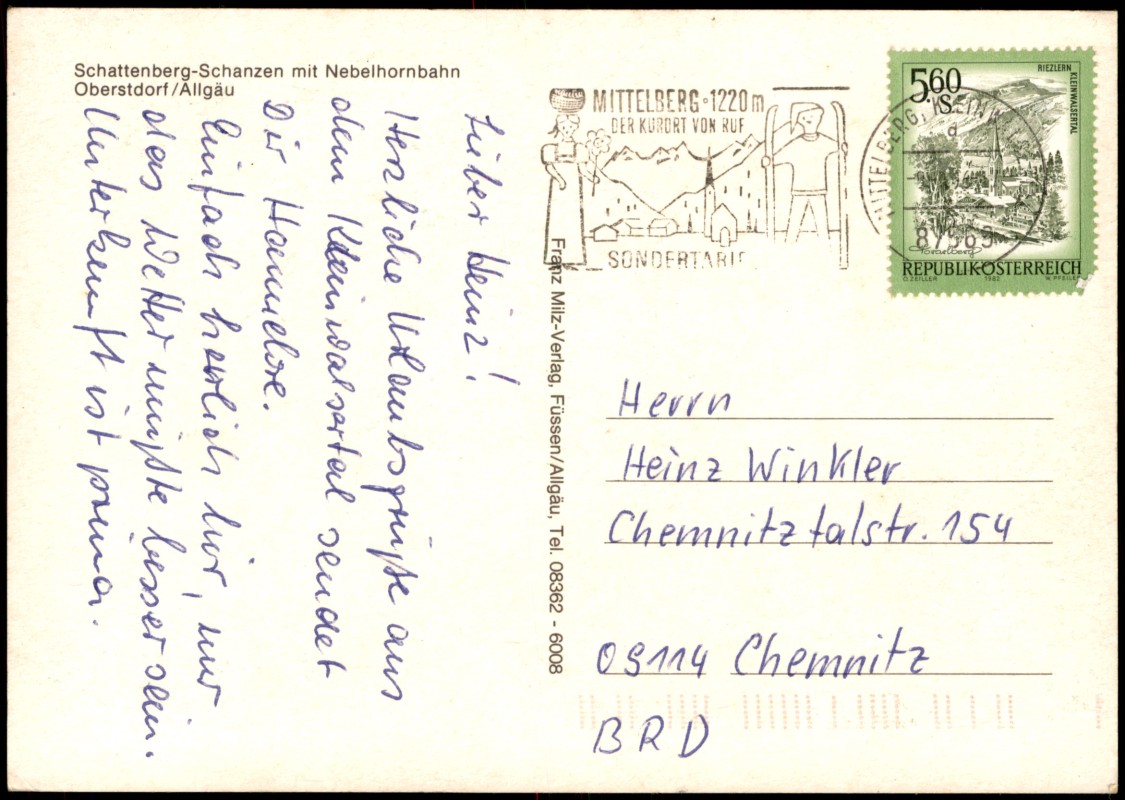 Schattenberg-Schanzen mit Nebelhornbahn
Oberstdorf/Allgäu
Lieber Heinz!
Herzliche Urlaubsgrüße aus
dem Kleinwalsertal sendet
Dir Hannelore.
Einfach herrlich hier, nur
das Wetter müßte besser sein.
Unterkunft ist prima.
Franz Milz-Verlag, Füssen/Allgäu, Tel. 08362 - 6008
MITTELBERG · 1220 m
DER KURORT VON RUF
SONDERTARIF
MITTELBERG, KLEINW
d
87569
5,60
S
RIEZLERN
KLEINWALSERTAL
Vorarlberg
REPUBLIK ÖSTERREICH
O. ZEILLER 1982 W. PFEILER
Herrn
Heinz Winkler
Chemnitztalstr. 154
09114 Chemnitz
BRD